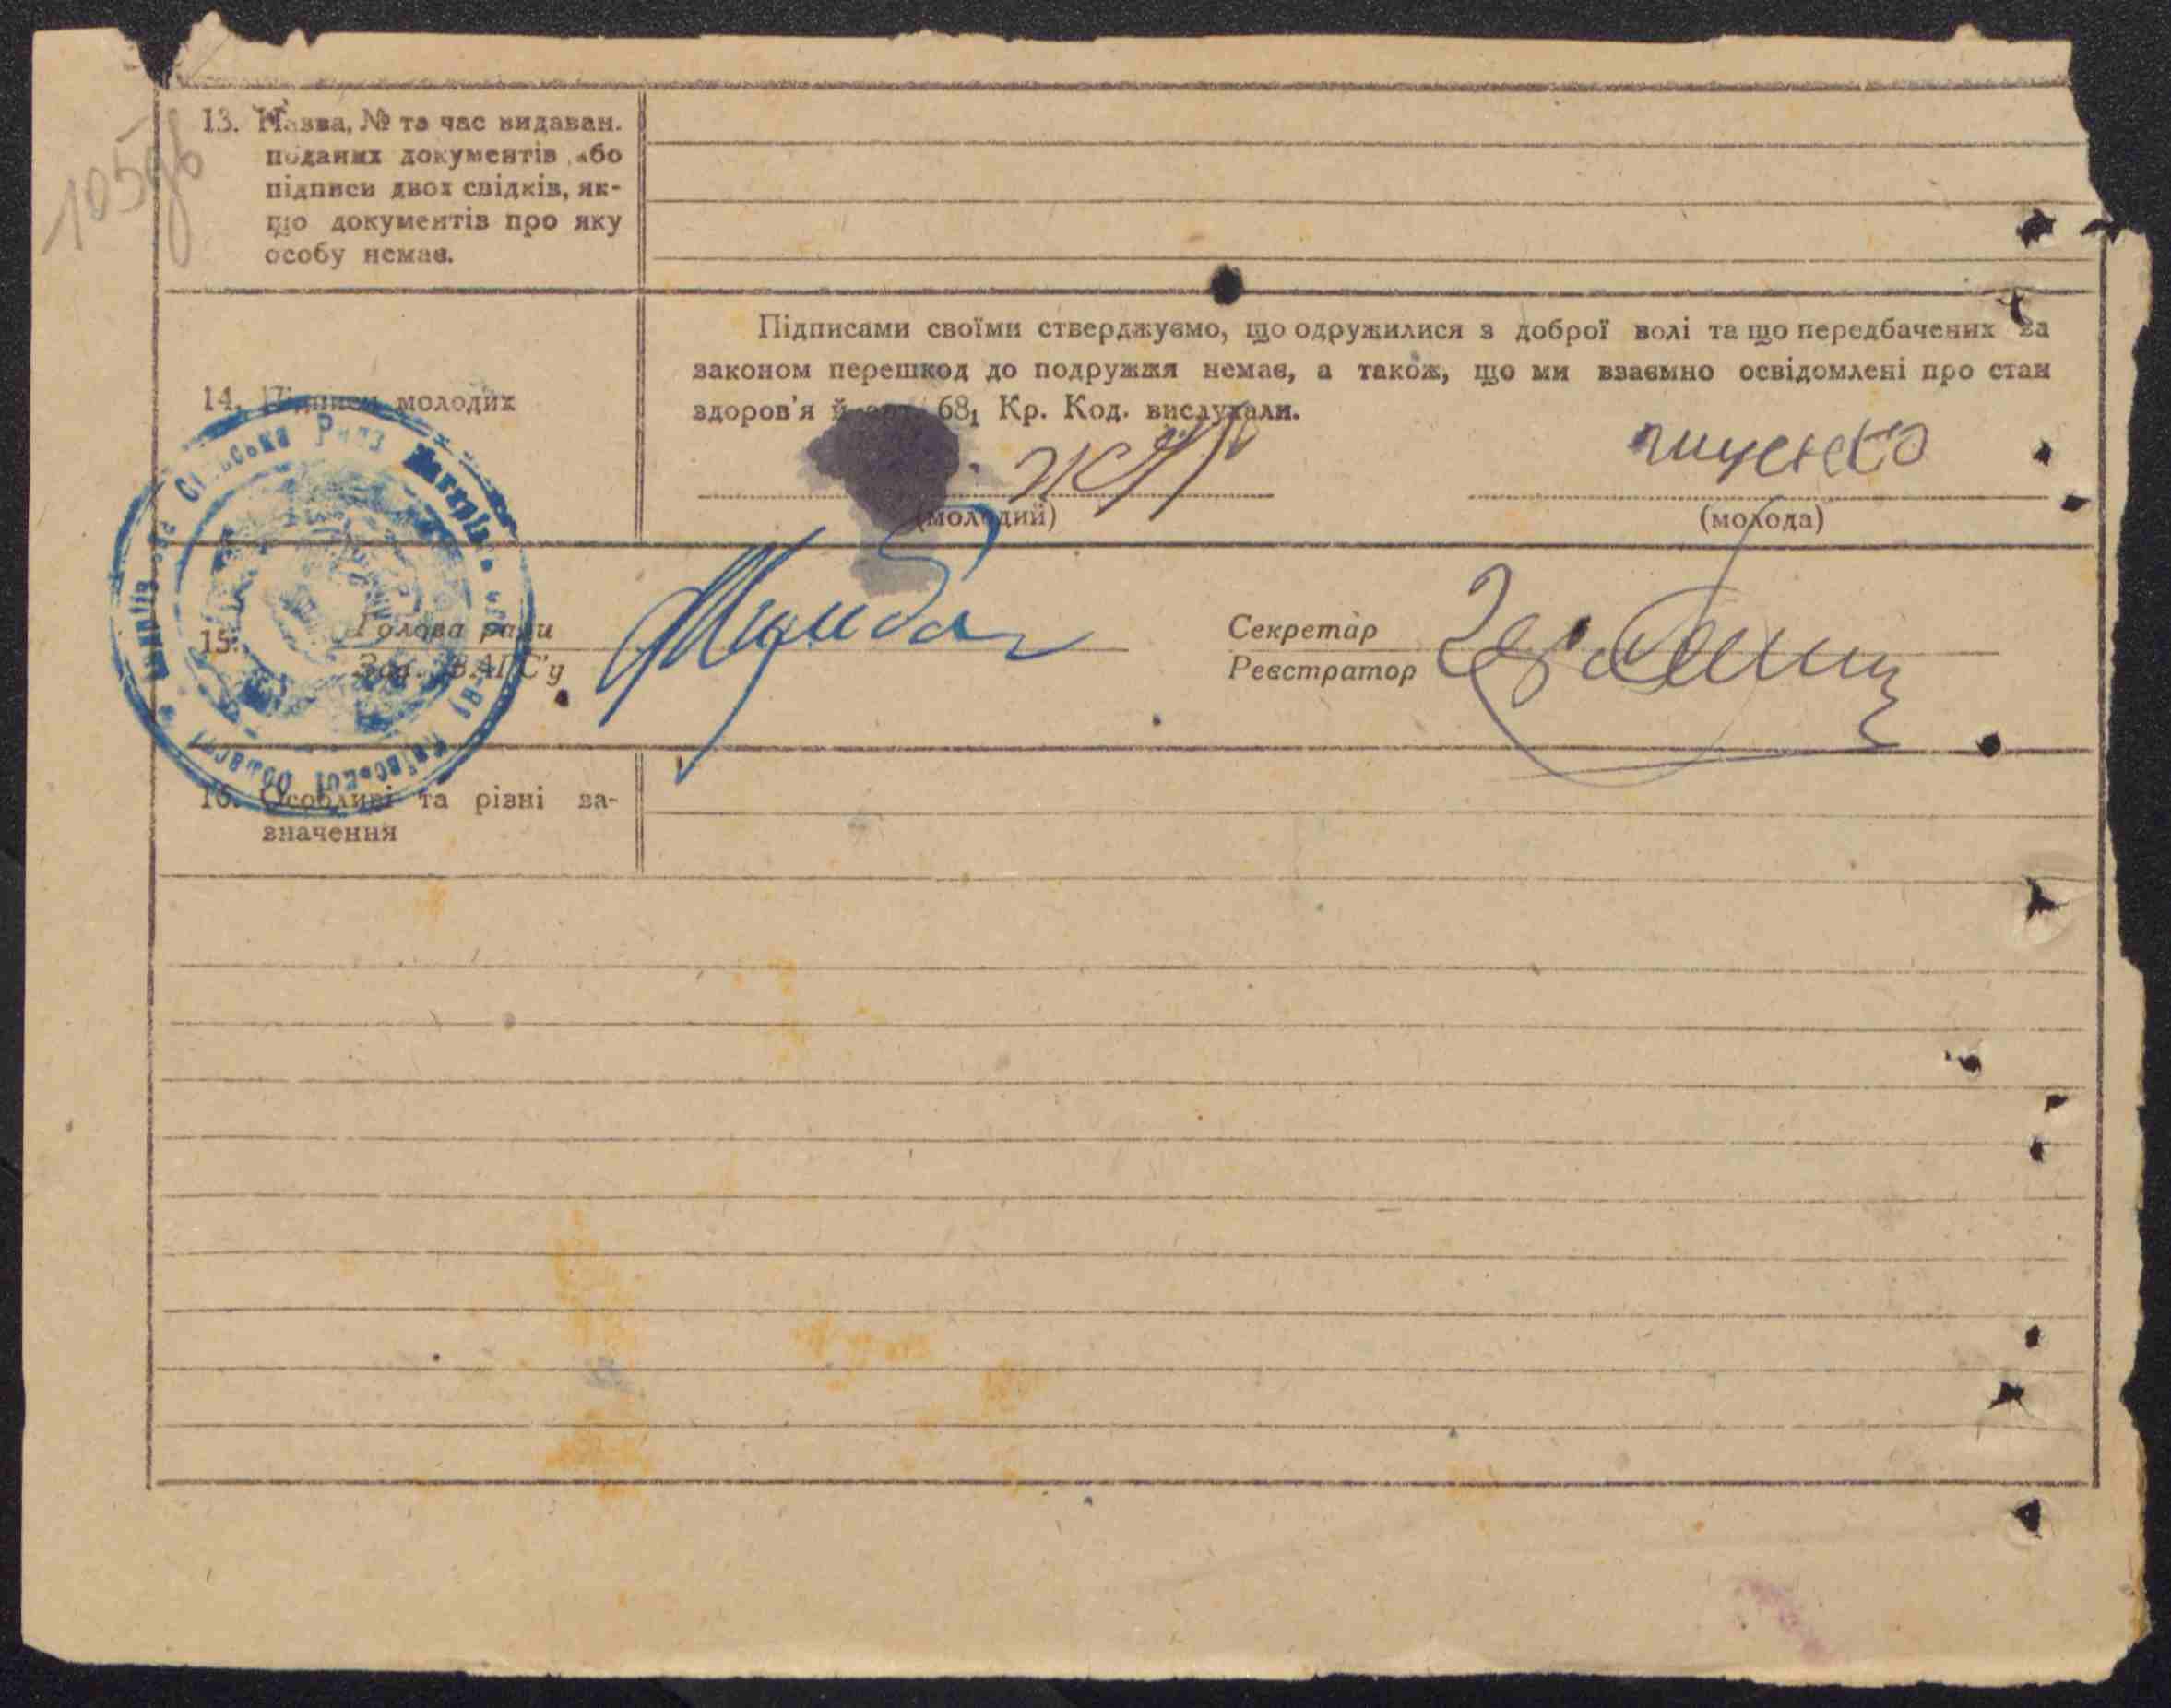 105зв
13. Назва, № та час видаван.
поданих документів або
підписи двох свідків, як-
що документів про яку
особу немає.
Підписами своїми стверджуємо, що одружилися з доброї волі та що передбачених за
законом перешкод до подружжя немає, а також, що ми взаємно освідомлені про стан
здоров'я й арт. 68₁ Кр. Код. вислухали.
14. Підписи молодих
(молодий)
(молода)
Сільська Рада
Київської Області
15.
Голова ради
Зав. ЗАГС'у
Секретар
Реєстратор
16. Особливі та різні за-
значення